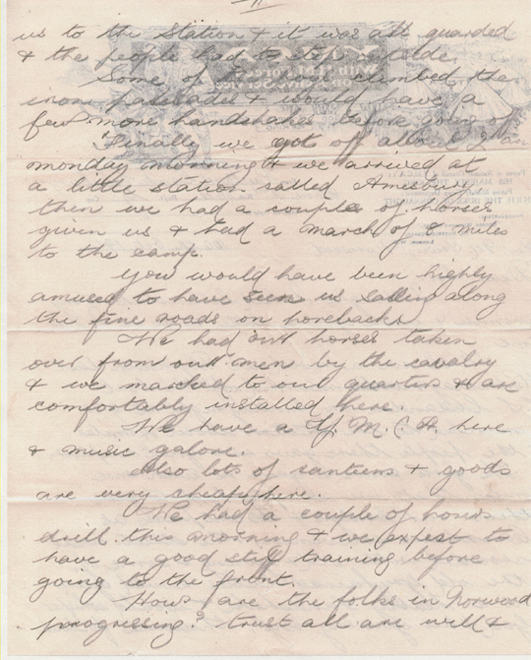 11.
us to the Station & it was all guarded
& the people had to step aside.
Some of the boys climbed the
iron palisades & would have a
few more handshakes before going off
Finally we got off about 2 am
monday morning & we arrived at
a little station called Amesbury
then we had a couple of horses
given us & had a march of 8 miles
to the camp.
You would have been highly
amused to have seen us sailing along
the fine roads on horseback
We had our horses taken
over from our men by the cavalry
& we marched to our quarters & are
comfortably installed here.
We have a Y. M. C. A. here
& music galore.
Also lots of canteens & goods
are very cheap here.
We had a couple of hours
drill this morning & we expect to
have a good stiff training before
going to the front.
How are the folks in Norwood
progressing? trust all are well &